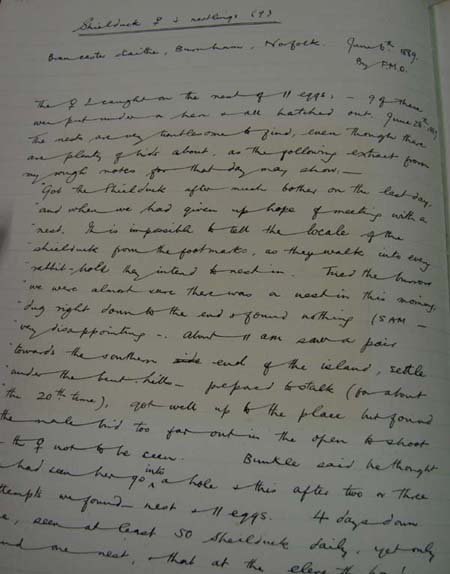 Shielduck ♀ & nestlings (9)
Brancaster Staithe, Burnham, Norfolk. June 6th 1889.
By F.M.O.
The ♀ I caught on the nest of 11 eggs, – 9 of these
were put under a hen & all hatched out. June 28th 1889
The nests are very troublesome to find, even though there
are plenty of birds about, as the following extract from
my rough notes for that day may show, –
"Got the Shielduck after much bother on the last day,
"and when we had given up hope of meeting with a
"nest. It is impossible to tell the locale of the
"shielduck from the footmarks, as they walk into every
"rabbit-hole they intend to nest in. Tried the burrows
"we were almost sure there was a nest in this morning,
"dug right down to the end & found nothing (5 AM –
"very disappointing –. About 11 am saw a pair
"towards the southern end of the island, settle
"under the bent-hills – prepared to stalk (for about
"the 20th time), got well up to the place but found
the male bird too far out in the open to shoot
– the ♀ not to be seen. Bunkle said he thought
had seen her go into a hole & this after two or three
attempts we found – nest & 11 eggs. 4 days down
seen at least 50 Shielduck daily, yet only
one nest, & that at the